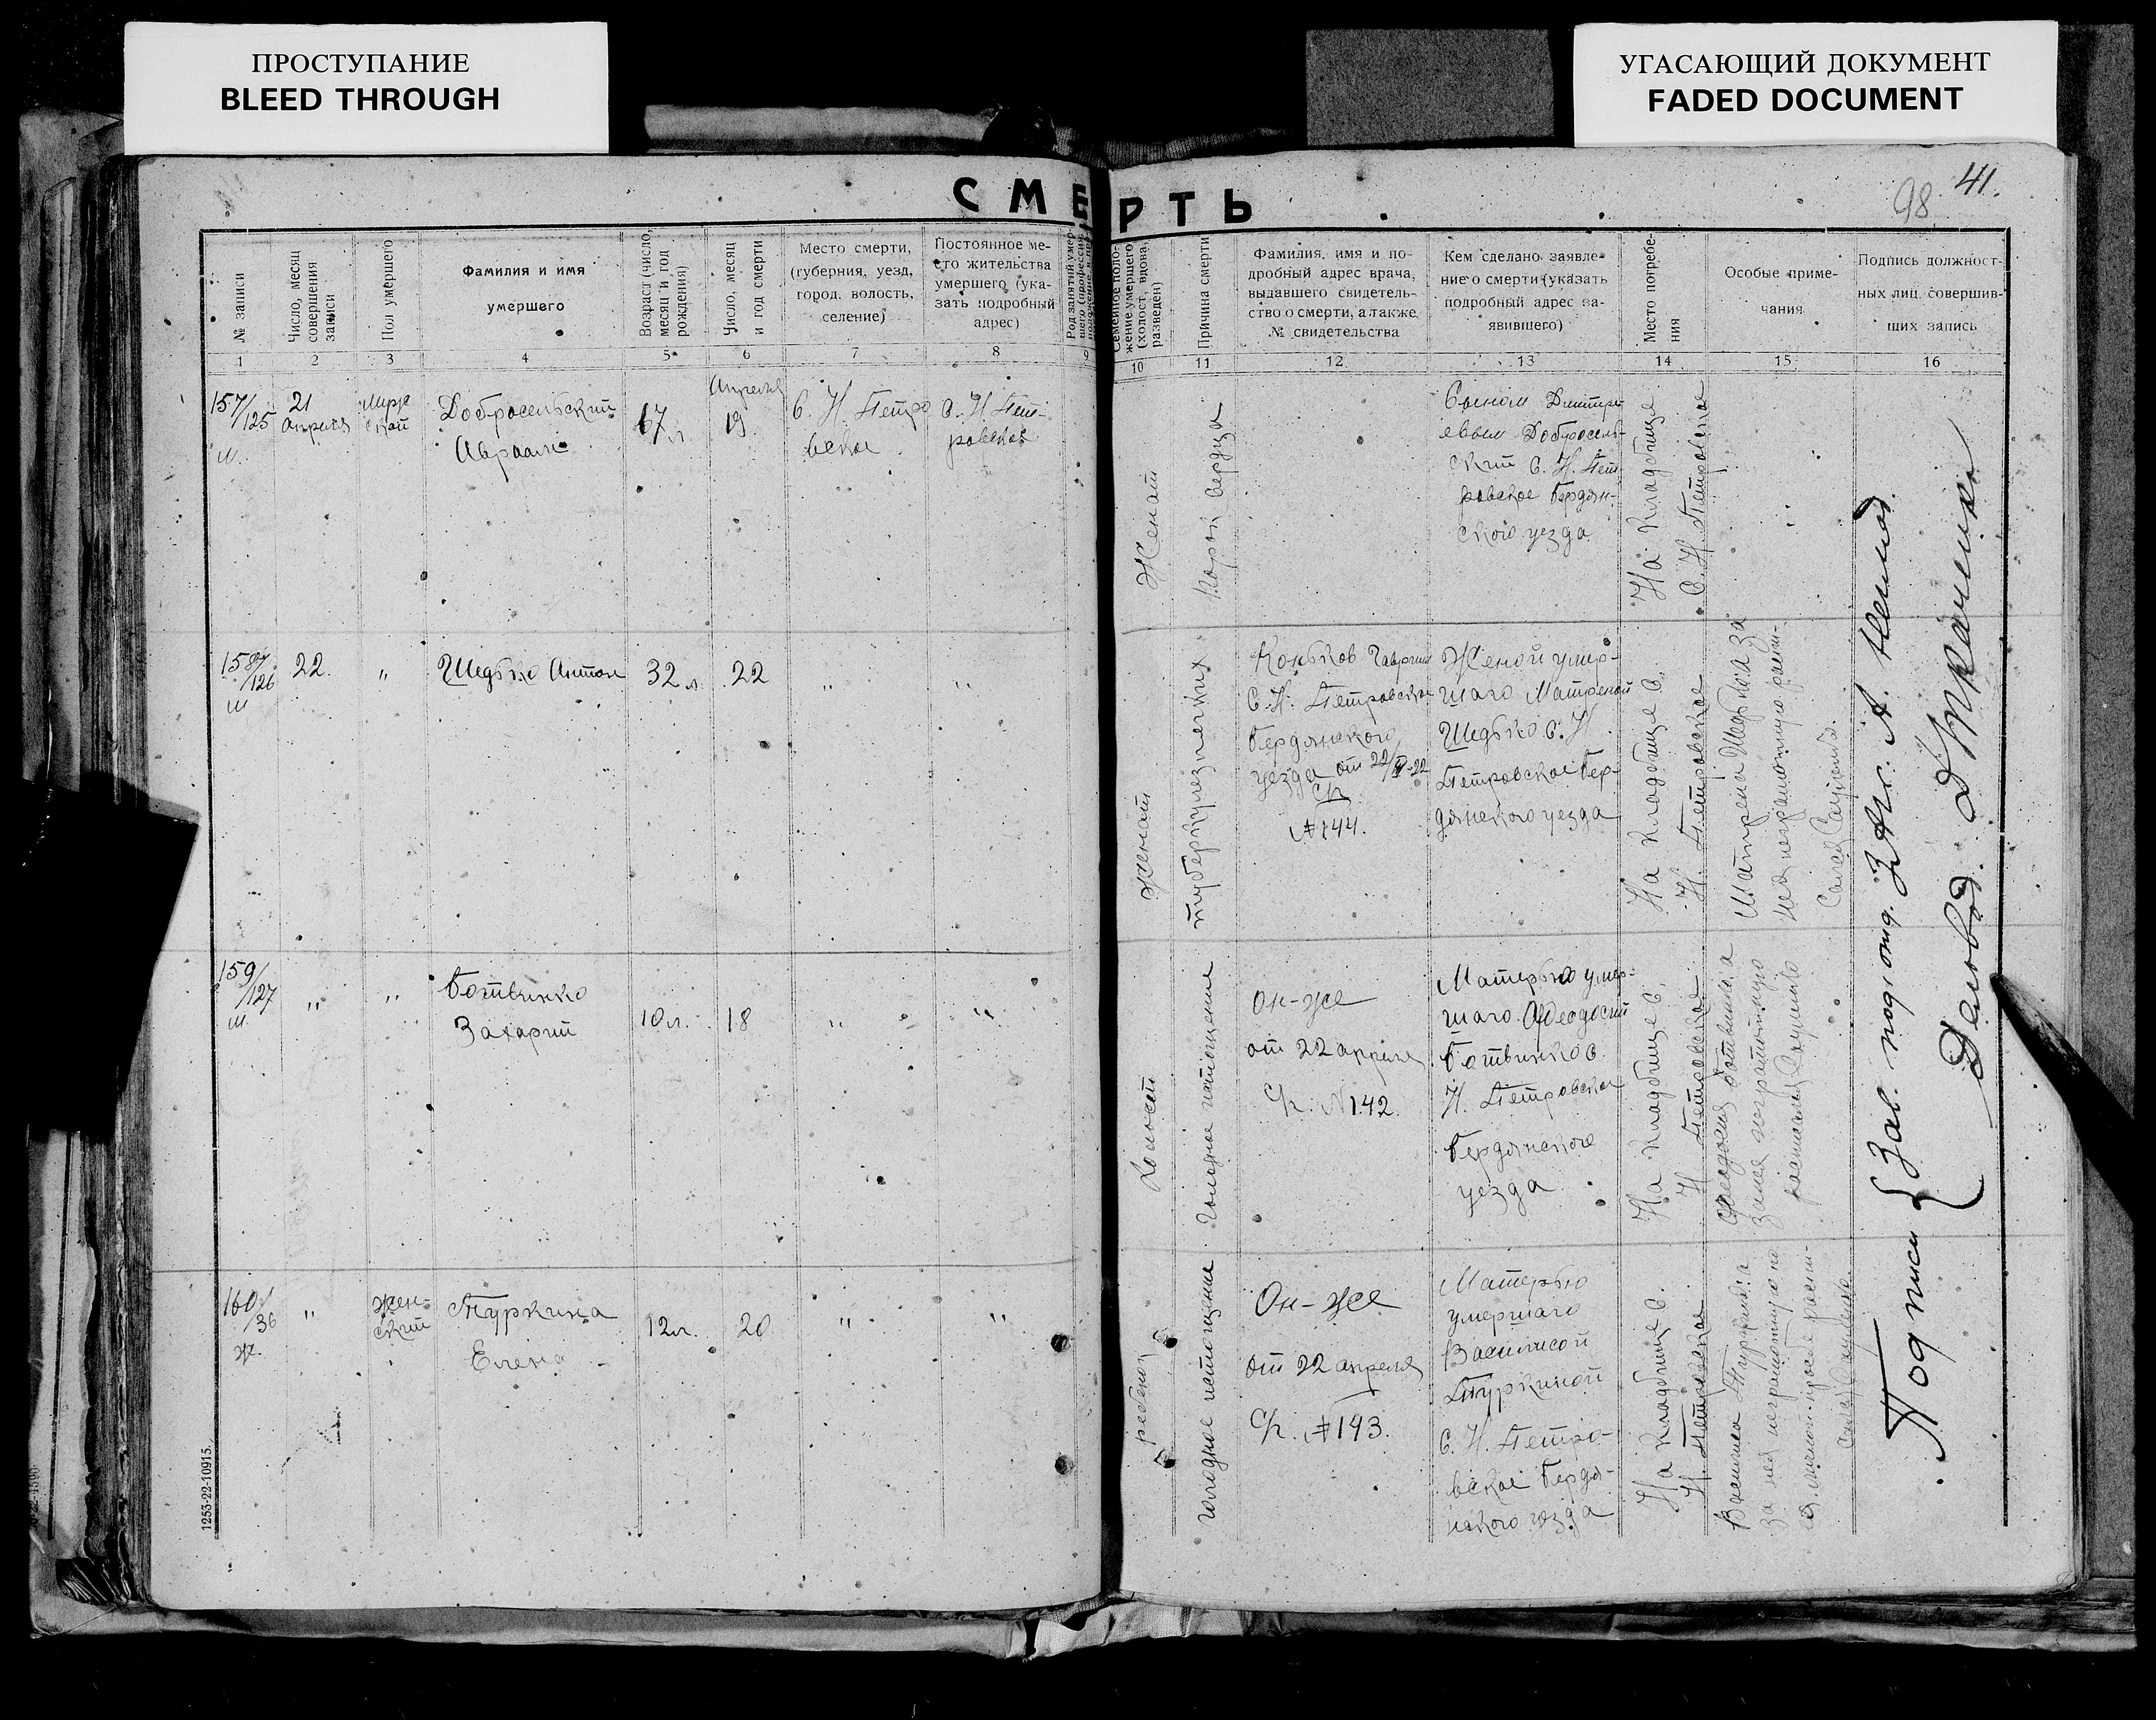 ПРОСТУПАНИЕ
BLEED THROUGH
УГАСАЮЩИЙ ДОКУМЕНТ
FADED DOCUMENT
СМЕРТЬ
98
41.
№ записи
Число, месяц
совершения
записи
Пол умершего
Фамилия и имя
умершего
Возраст (число,
месяц и год
рождения)
Число, месяц
и год смерти
Место смерти,
(губерния, уезд,
город, волость,
селение)
Постоянное ме-
сто жительства
умершего (ука-
зать подробный
адрес)
Род занятий умер-
шего (профессия,
Семейное поло-
жение умершего
(холост, вдова,
разведен)
Причина смерти
Фамилия, имя и по-
дробный адрес врача,
выдавшего свидетель-
ство о смерти, а также
№ свидетельства
Кем сделано заявле-
ние о смерти (указать
подробный адрес за-
явившего)
Место погребе-
ния
Особые приме-
чания
Подпись должност-
ных лиц, совершив-
ших запись
1 2 3 4 5 6 7 8 9 10 11 12 13 14 15 16
157/125
м.
21
апреля
Мужс
кой
Добросельский
Авраам
67 л
Апреля
19
С. Н Петро
вское
С. Н Пет-
ровское
Женат
Порок сердца
Сыном Дмитри
евым Добросель-
ский С. Н. Пет-
ровское Бердян-
ского уезда
На кладбище
С. Н. Петровское
158/126
м
22.
"
Шедько Антон
32 л
22
"
"
Женат
туберкулез легких
Коньков Гавриил
С. Н. Петровское
Бердянского
уезда от 22/IV-22
№ 144.
Женой умер-
шаго Матреной
Шедько с. Н.
Петровское Бер-
дянского уезда
На кладбище С.
Н. Петровское
Матрена Шедько а за
нея неграмотную распи-
159/127
м
"
"
Ботвинко
Захарий
10 л.
18
"
"
Холост
Голодное истощение
он-же
от 22 апреля
№ 142.
Матерью умер-
шаго Феодосий
Ботвинко с.
Н. Петровское
Бердянского
уезда
На кладбище С.
Н Петровское
Феодосия Ботвинко а
за нея неграмотную
160/36
ж.
"
жен-
ский
Туркина
Елена
12 л.
20
"
"
ребенок
Голодное истощение
Он-же
от 22 апреля
№ 143.
Матерью
умершаго
Василисой
Туркиной
С. Н. Петро-
вское Бердя-
нского уезда
На кладбище С.
Н. Петровское
Василиса Туркина а
за нея неграмотную по
ея личной просьбе распи-
Подписи { Зав. подотд.
Деловод. Ткаченко
1253-22-10915.